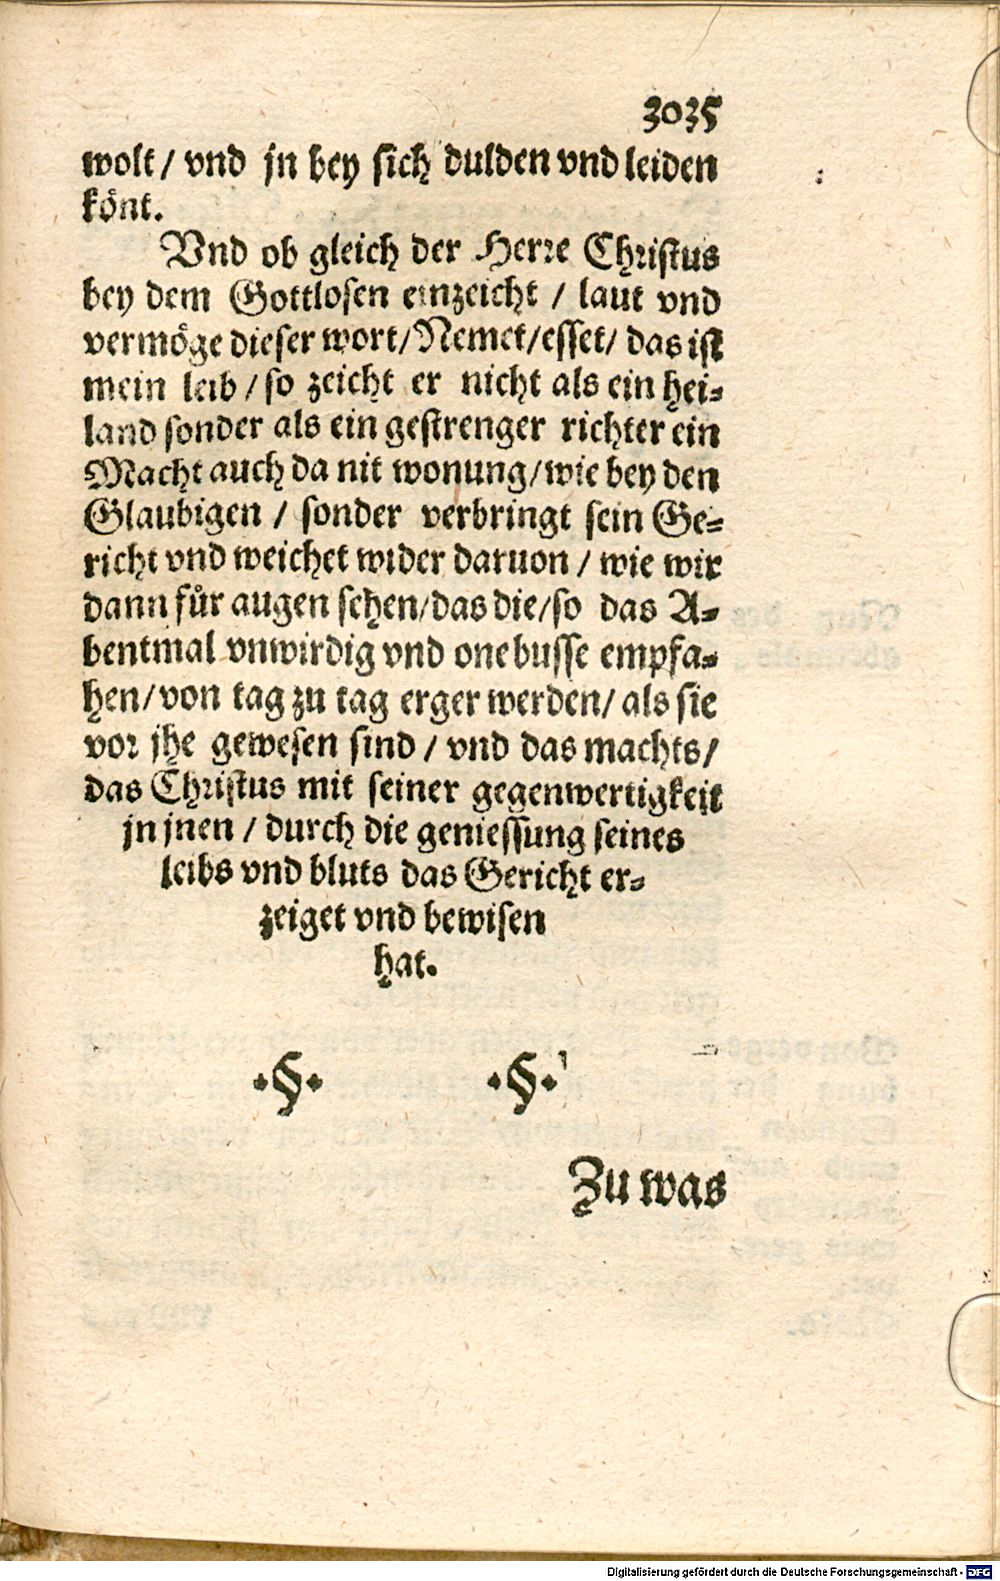 3035
wolt / vnd jn bey sich dulden vnd leiden
könt.
Vnd ob gleich der Herre Christus
bey dem Gottlosen einzeicht / laut vnd
vermöge dieser wort/Nemet/esset/ das ist
mein leib / so zeicht er nicht als ein hei=
land sonder als ein gestrenger richter ein
Macht auch da nit wonung/wie bey den
Glaubigen / sonder verbringt sein Ge=
richt vnd weichet wider daruon / wie wir
dann fůr augen sehen/das die/so das A=
bentmal vnwirdig vnd one busse empfa=
hen/von tag zu tag erger werden/ als sie
vor jhe gewesen sind / vnd das machts/
das Christus mit seiner gegenwertigkeit
jn jnen / durch die geniessung seines
leibs vnd bluts das Gericht er=
zeiget vnd bewisen
hat.
•§• •§•
Zu was
Digitalisierung gefördert durch die Deutsche Forschungsgemeinschaft - DFG